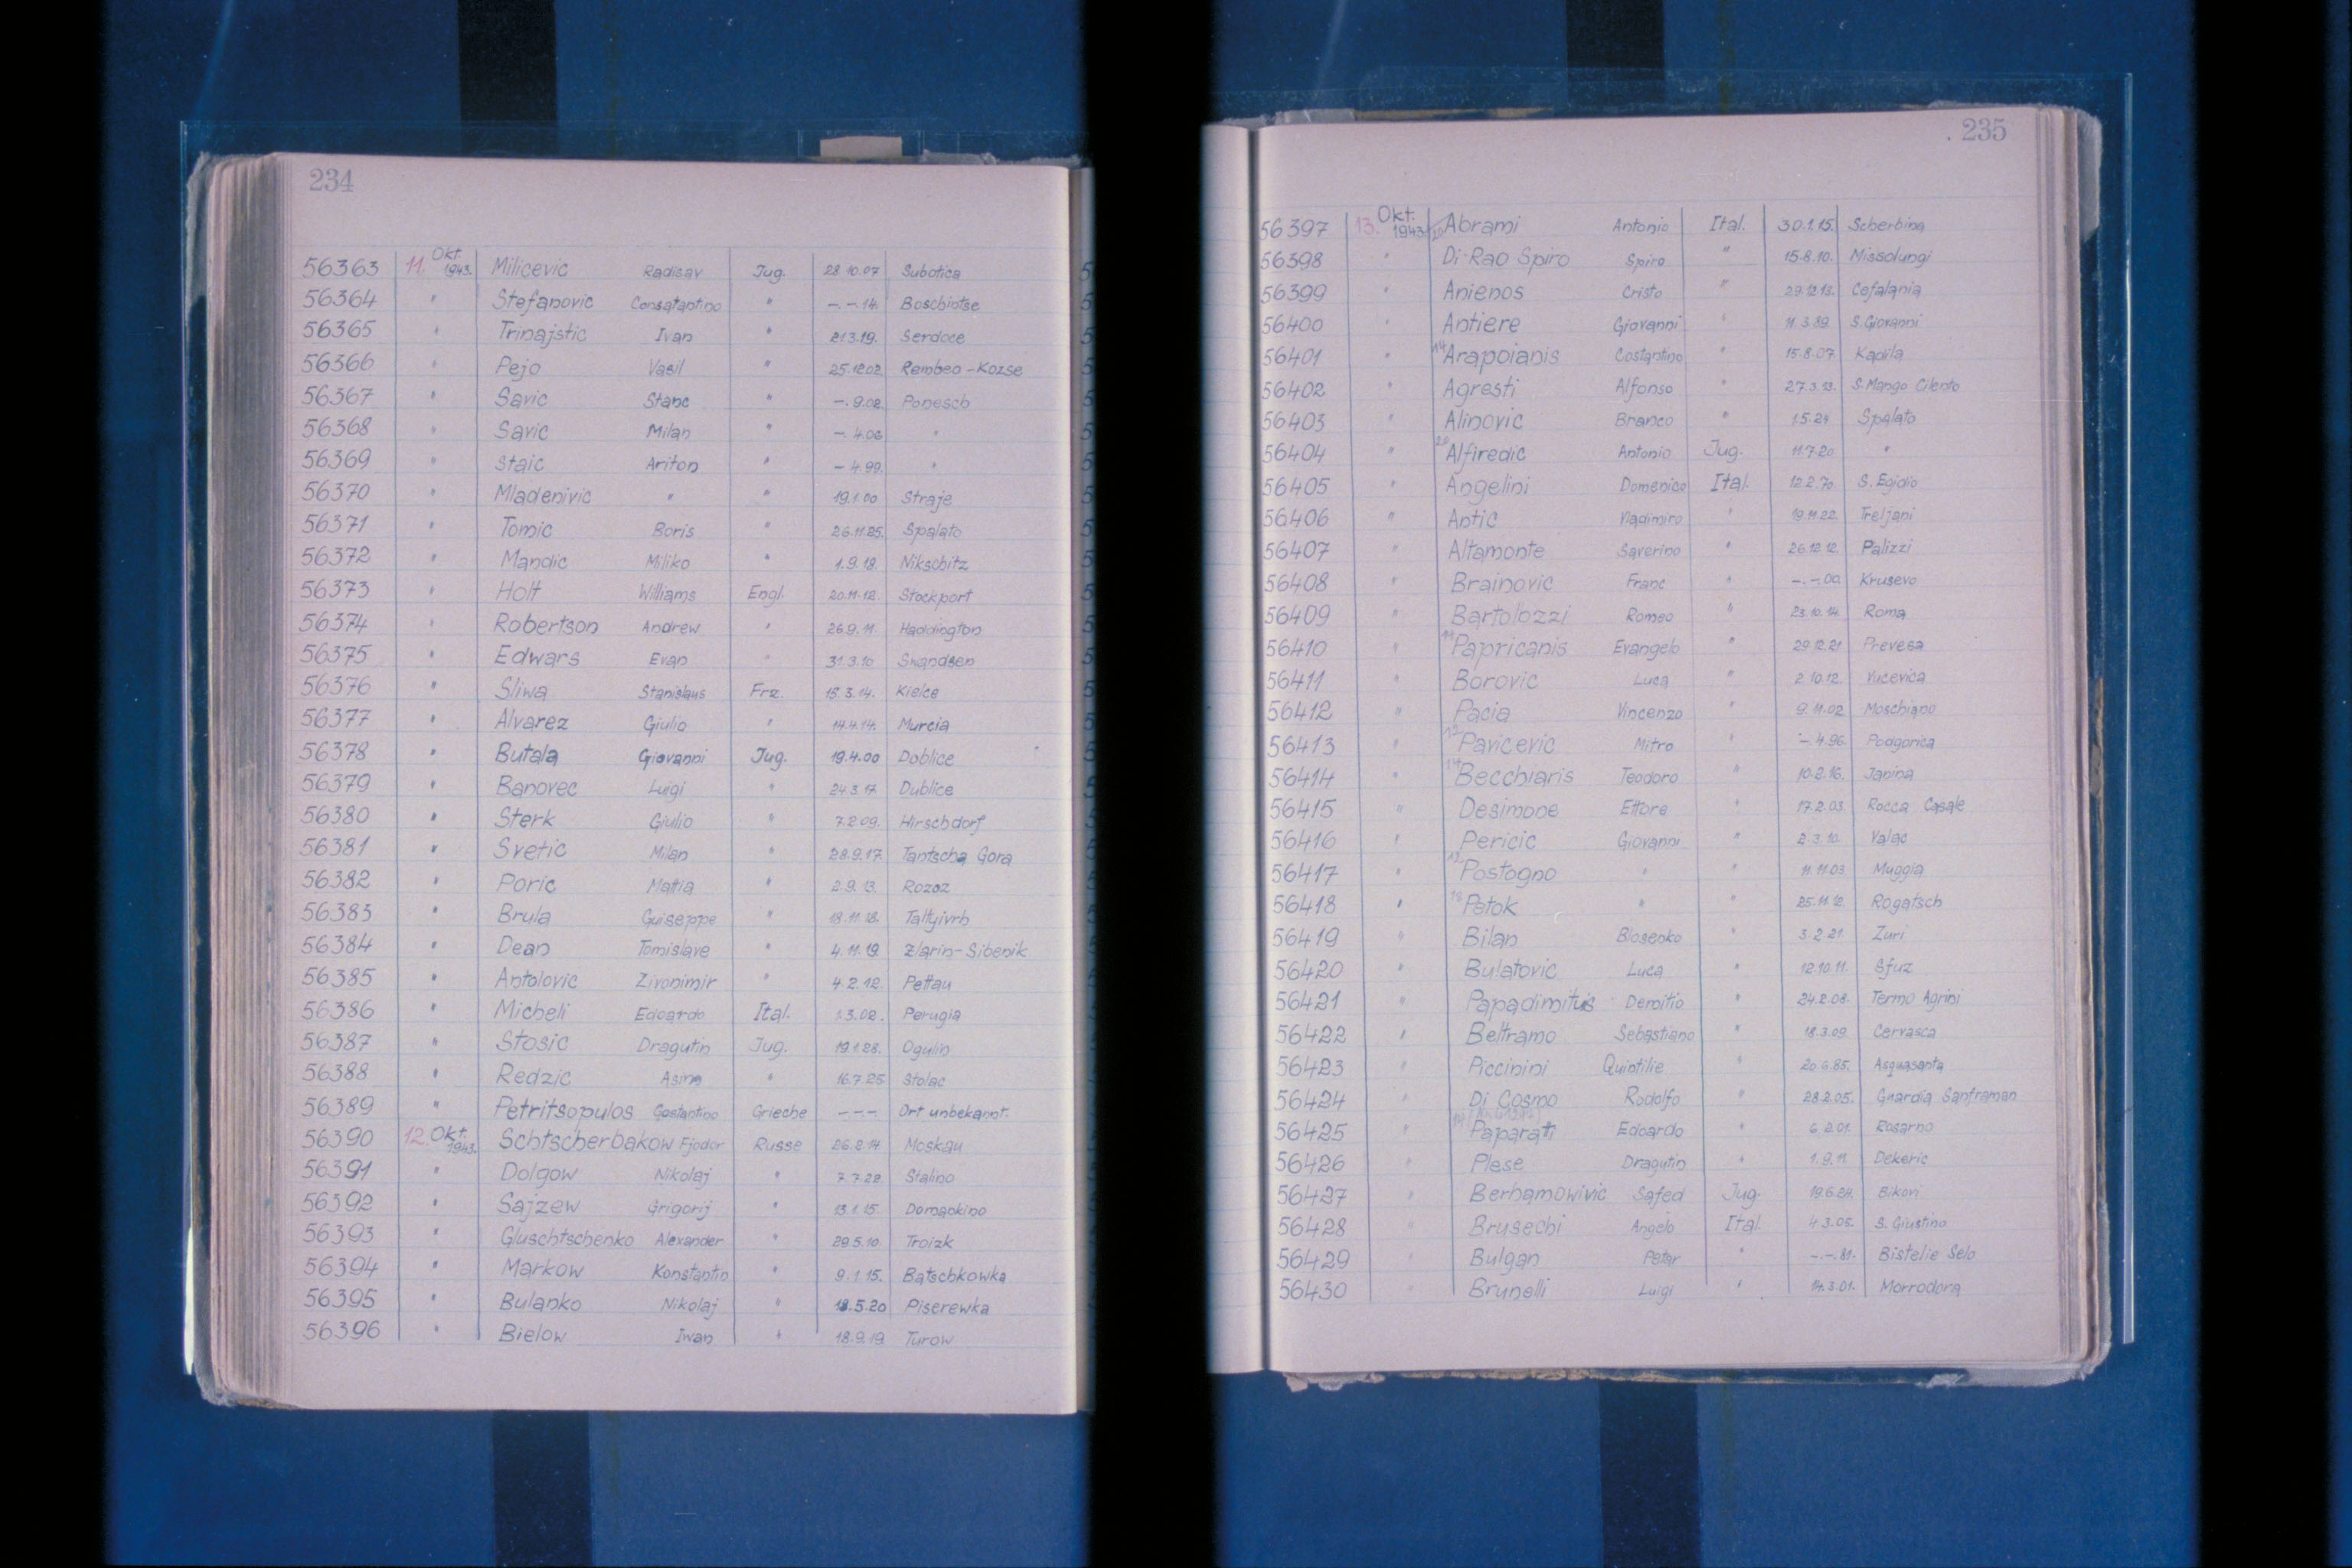 234
56363 11. Okt. 1943. Milicevic Radisav Jug. 28.10.07 Subotica
56364 " Stefanovic Consatantino " -.-.14. Boschintse
56365 " Trinajstic Ivan " 21.3.19. Serdoce
56366 " Pejo Vasil " 25.12.02. Rembeo-Kozse
56367 " Savic Stanc " -.9.02. Ponesch
56368 " Savic Milan " -.4.06 "
56369 " Staic Ariton " -4.99. "
56370 " Mladenivic " " 19.1.00 Straje
56371 " Tomic Boris " 26.11.25. Spalato
56372 " Mandic Miliko " 1.9.18. Nikschitz
56373 " Holt Williams Engl. 20.11.12. Stockport
56374 " Robertson Andrew " 26.9.11. Haddington
56375 " Edwars Evan " 31.3.10 Swandsen
56376 " Sliwa Stanislaus Frz. 15.3.14. Kielce
56377 " Alvarez Giulio " 14.4.14. Murcia
56378 " Butala Giovanni Jug. 19.4.00 Doblice
56379 " Banovec Luigi " 24.3.17. Dublice
56380 " Sterk Giulio " 7.2.09. Hirschdorf
56381 " Svetic Milan " 28.9.17. Tantscha Gora
56382 " Poric Mattia " 2.9.13. Rozoz
56383 " Brula Guiseppe " 18.11.18. Taltyivrh
56384 " Dean Tomislave " 4.11.19 Zlarin-Sibenik
56385 " Antolovic Zivonimir " 4.2.12. Pettau
56386 " Micheli Edoardo Ital. 1.3.02. Perugia
56387 " Stosic Dragutin Jug. 19.1.28. Ogulin
56388 " Redzic Asim " 16.7.25 Stolac
56389 " Petritsopulos Costantino Grieche - - - Ort unbekannt.
56390 12. Okt. 1943. Schtscherbakow Fjodor Russe 26.2.14 Moskau
56391 " Dolgow Nikolaj " 7.7.22. Stalino
56392 " Sajzew Grigorij " 13.1.15. Domaokino
56393 " Gluschtschenko Alexander " 29.5.10. Troizk
56394 " Markow Konstantin " 9.1.15. Batschkowka
56395 " Bulanko Nikolaj " 18.5.20 Piserewka
56396 " Bielow Iwan " 18.9.19. Turow
235
56397 13. Okt. 1943. Abrami Antonio Ital. 30.1.15. Scherbina
56398 " Di-Rao Spiro Spiro " 15.8.10. Missolungi
56399 " Anienos Cristo " 29.12.13. Cefalania
56400 " Antiere Giovanni " 11.3.89. S.Giovanni
56401 " Arapoianis Costantino " 15.8.07. Kadila
56402 " Agresti Alfonso " 27.3.13. S.Mango Cilento
56403 " Alinovic Branco " 1.5.24 Spalato
56404 " 20 Alfiredic Antonio Jug. 11.7.20 "
56405 " Angelini Domenico Ital. 12.2.70. S. Egidio
56406 " Antic Vladimiro " 19.11.22. Treljani
56407 " Altamonte Saverino " 26.12.12. Palizzi
56408 " Brainovic Franc " -.-.00. Krusevo
56409 " Bartolozzi Romeo " 23.10.14. Roma
56410 " Papricanis Evangelo " 29.12.21 Prevesa
56411 " Borovic Luca " 2.10.12. Vucevica
56412 " Pacia Vincenzo " 9.11.02. Moschiano
56413 " Pavicevic Mitro " -.4.96. Podgorica
56414 " Becchiaris Teodoro " 10.2.16. Janina
56415 " Desimone Ettore " 17.2.03. Rocca Casale
56416 " Pericic Giovanni " 2.3.10. Valac
56417 " Postogno " " 11.11.03 Muggia
56418 " Potok " " 25.11.12. Rogatsch
56419 " Bilan Blosenko " 3.2.21. Zuri
56420 " Bulatovic Luca " 12.10.11. Sfuz
56421 " Papadimitus Demitio " 24.2.08. Termo Agrini
56422 " Beltramo Sebastiano " 18.3.09 Cervasca
56423 " Piccinini Quintilie " 20.6.85. Asquasanta
56424 " Di Cosmo Rodolfo " 28.2.05. Guardia Sanframan
56425 " Paparati Edoardo " 6.2.01. Rosarno
56426 " Plese Dragutin " 1.9.11 Dekeric
56427 " Berhamowivic Safed Jug. 19.6.24. Bikovi
56428 " Brusechi Angelo Ital. 4.3.05. S. Giustino
56429 " Bulgan Peter " -.-.81. Bistelie Selo
56430 " Brunelli Luigi " 14.3.01. Morrodora